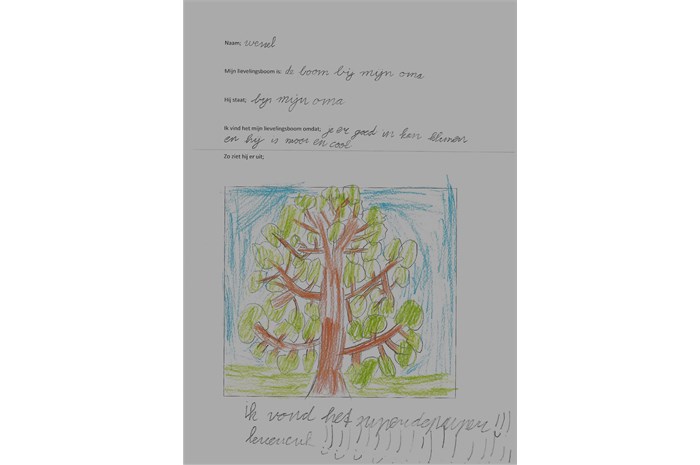 Naam; wessel
Mijn lievelingsboom is: de boom bij mijn oma
Hij staat; bij mijn oma
Ik vind het mijn lievelingsboom omdat; je er goed in kan klimen
en hij is mooi en cool
Zo ziet hij er uit;
ik vond het superdepuper !!)